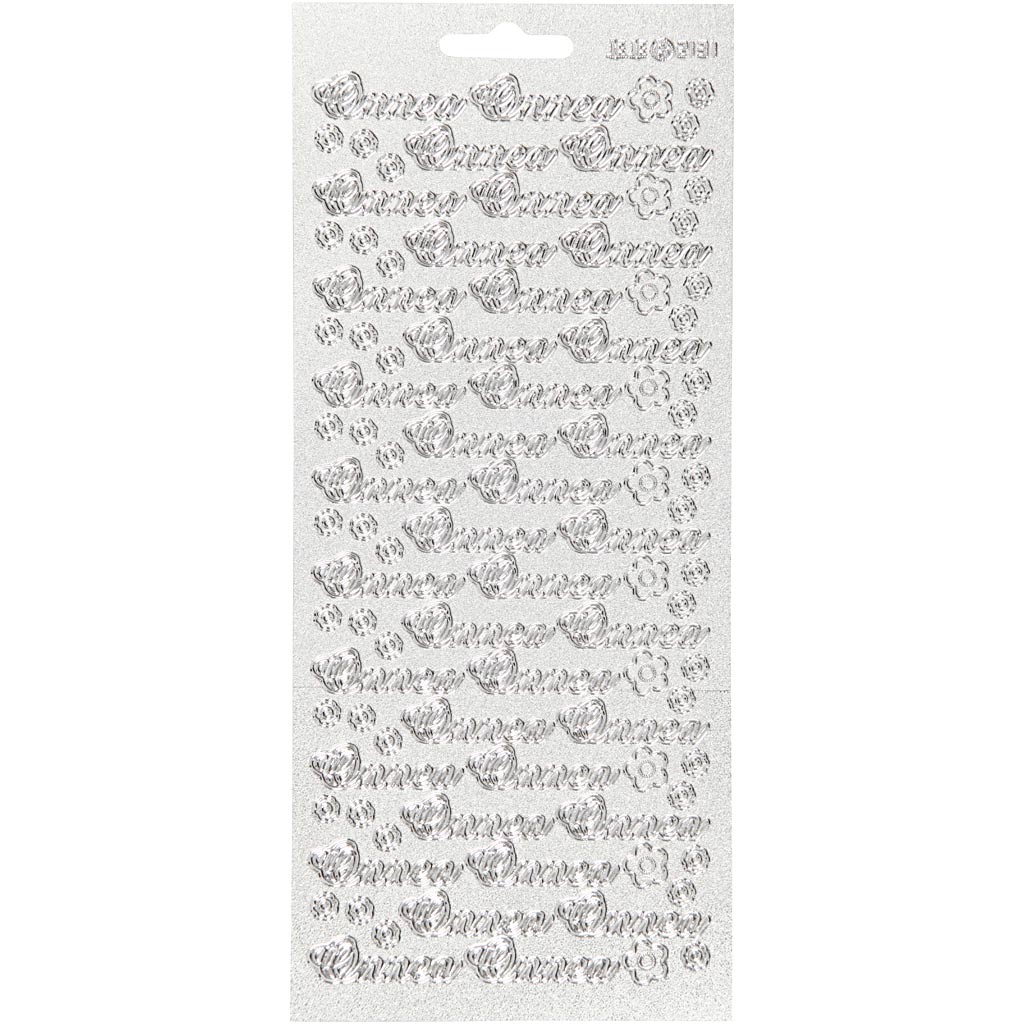 Onnea Onnea
Onnea Onnea
Onnea Onnea
Onnea Onnea
Onnea Onnea
Onnea Onnea
Onnea Onnea
Onnea Onnea
Onnea Onnea
Onnea Onnea
Onnea Onnea
Onnea Onnea
Onnea Onnea
Onnea Onnea
Onnea Onnea
Onnea Onnea
Onnea Onnea
Onnea Onnea
Onnea Onnea